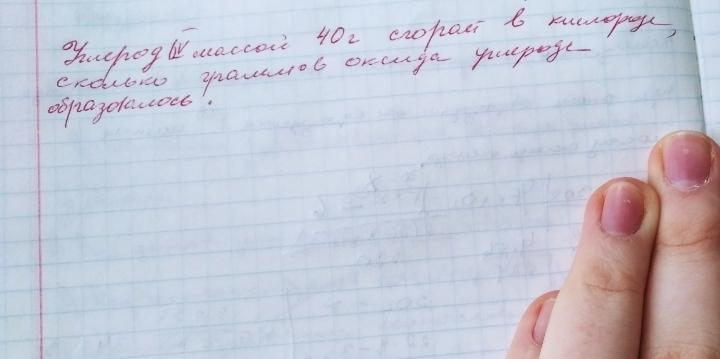 Углерод IV массой 40г сгорает в кислороде,
сколько граммов оксида углерода
образовалось.